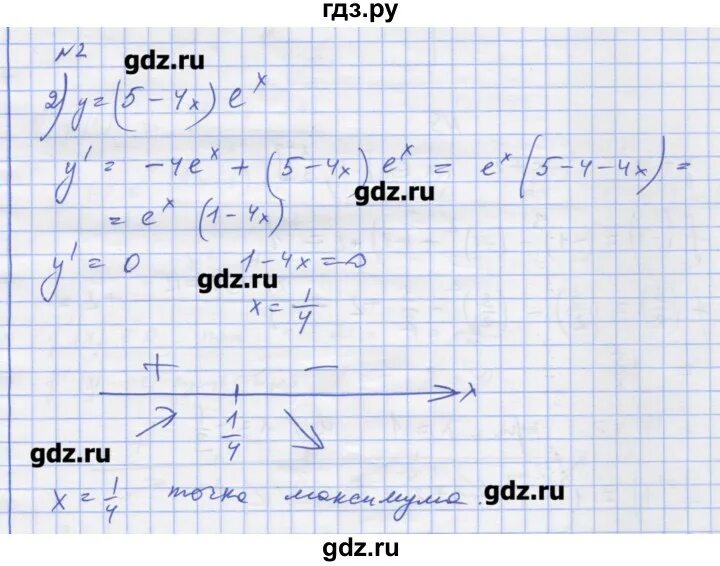 гдз.ру
№2
gdz.ru
2) y = (5 - 4x) e^x
y' = -4e^x + (5-4x) e^x = e^x (5-4-4x) =
gdz.ru
= e^x (1-4x)
y' = 0 1-4x=0
gdz.ru
x = 1/4
+ −
x
1/4
gdz.ru
x = 1/4 точка максимума.
gdz.ru
gdz.ru